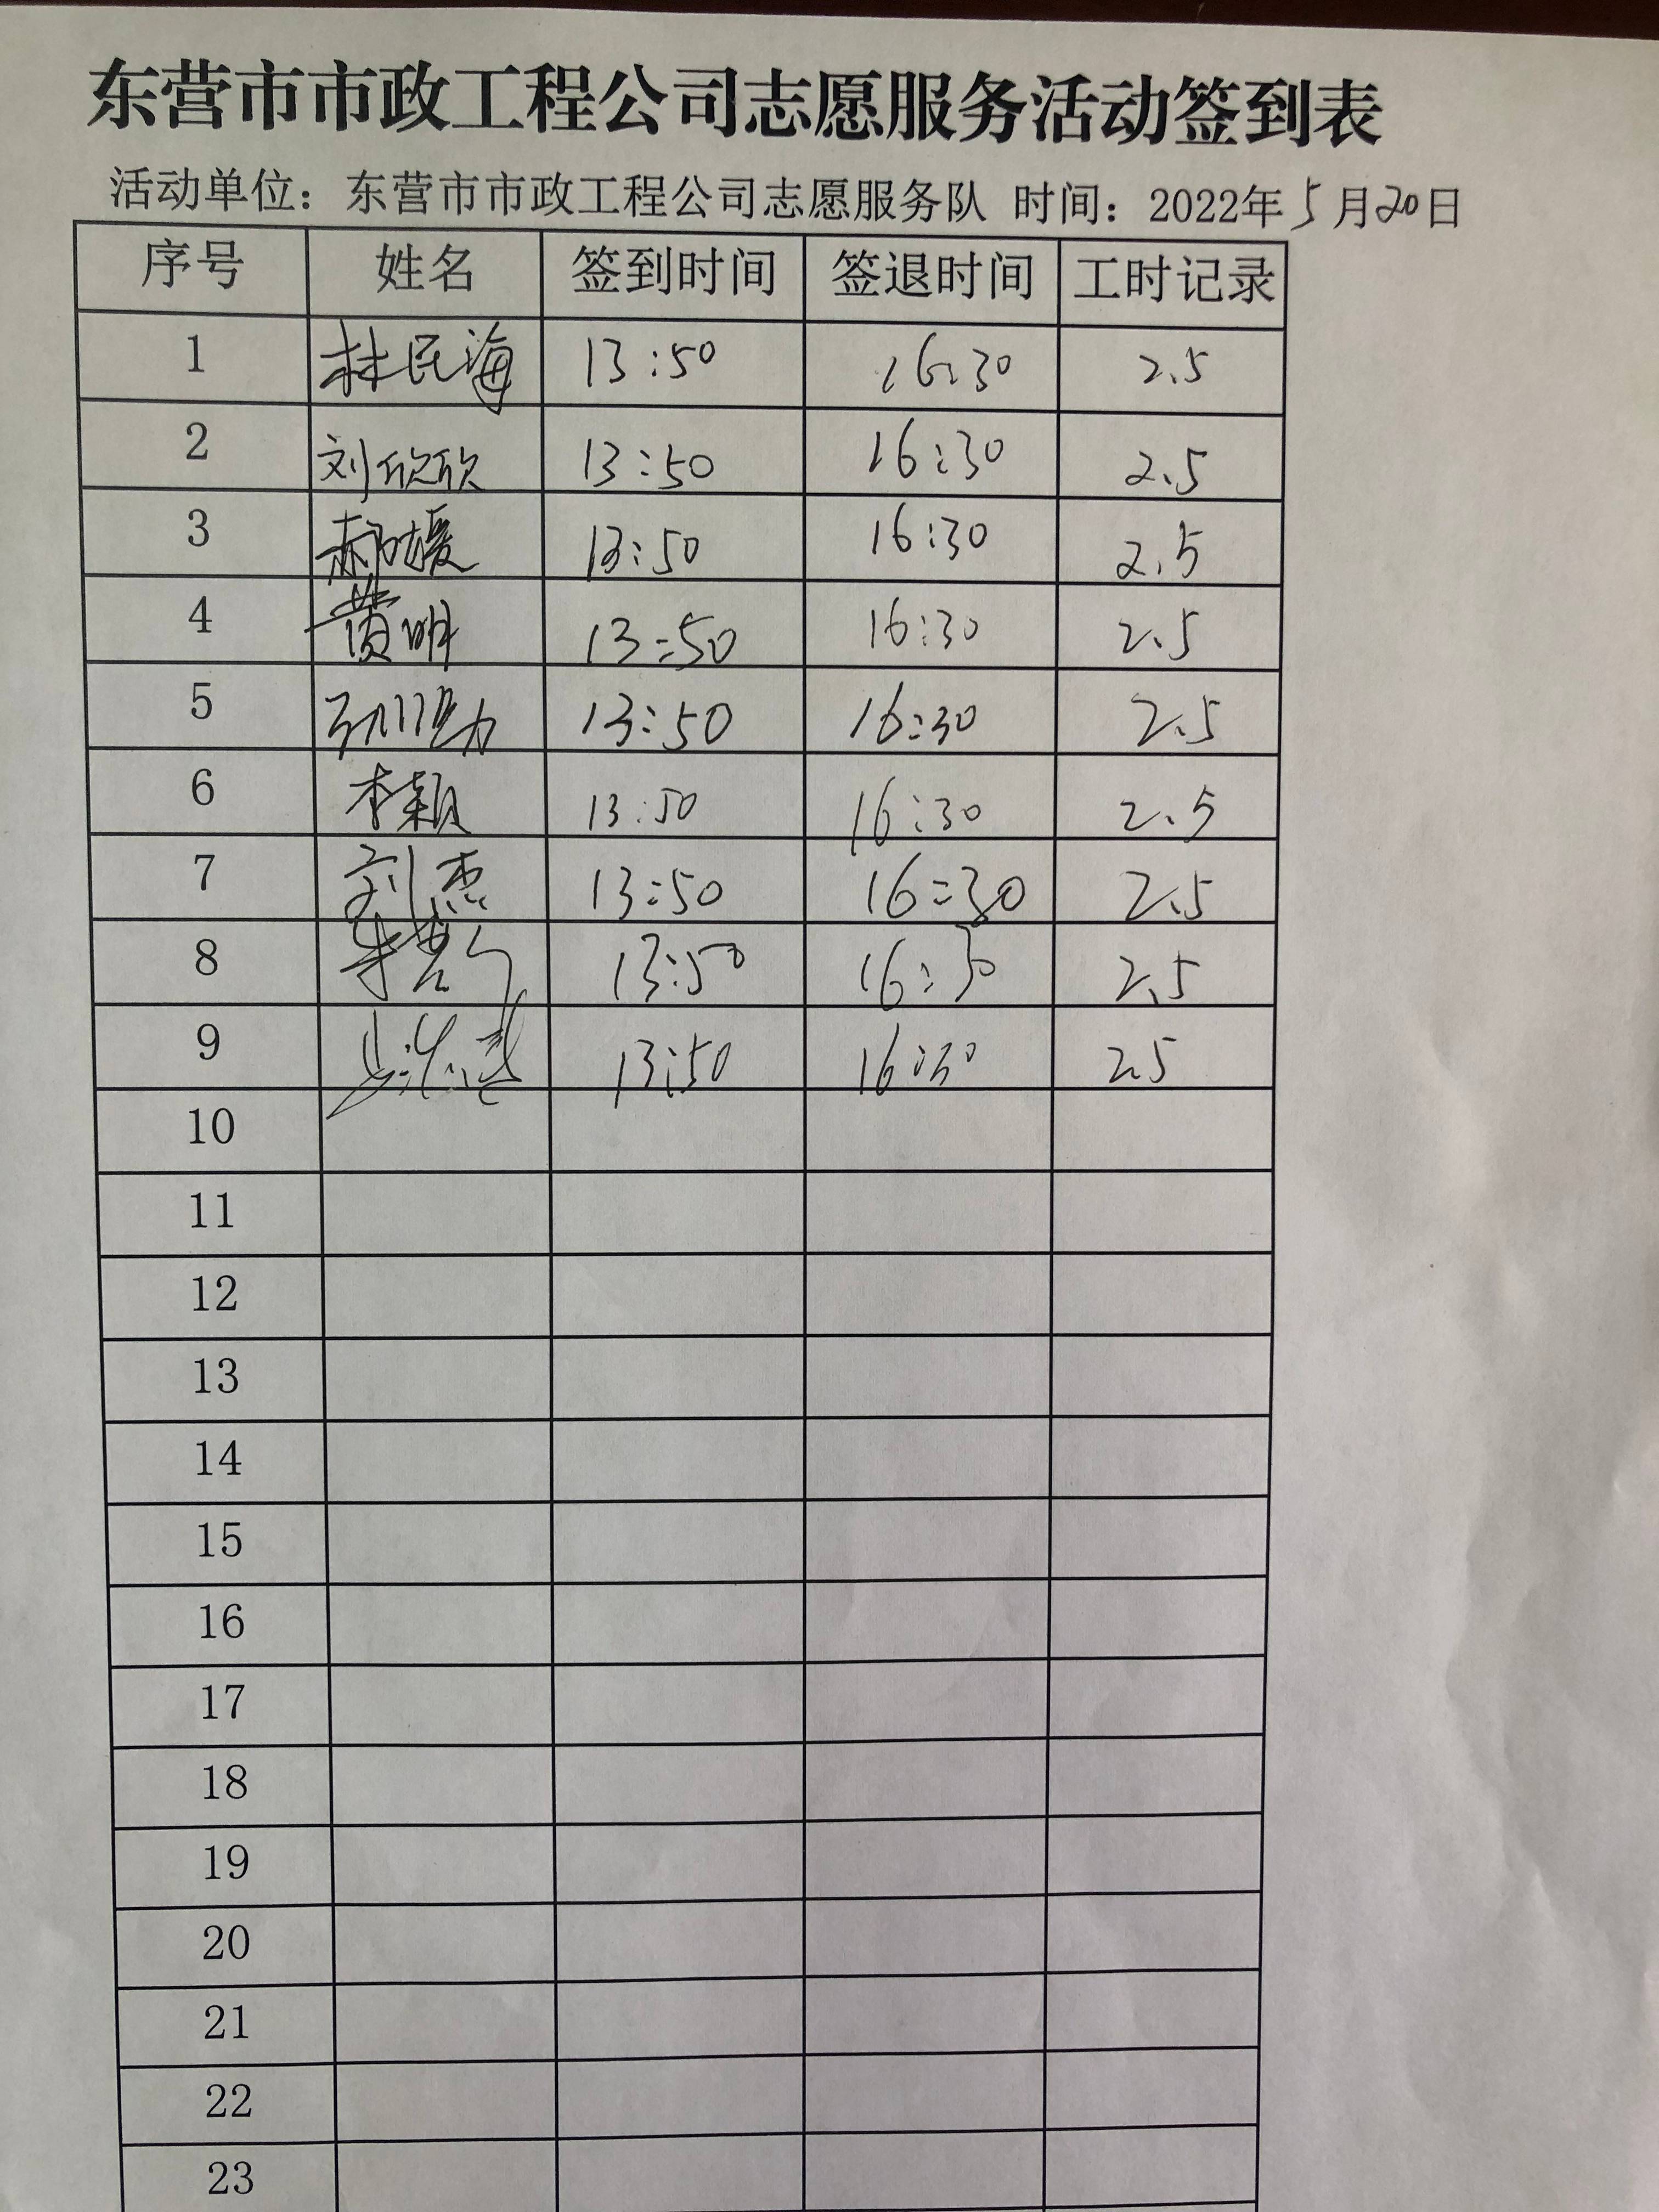 东营市市政工程公司志愿服务活动签到表
活动单位：东营市市政工程公司志愿服务队 时间：2022年5月20日
序号 姓名 签到时间 签退时间 工时记录
1 林民海 13:50 16:30 2.5
2 刘欣欣 13:50 16:30 2.5
3 13:50 16:30 2.5
4 黄明 13:50 16:30 2.5
5 13:50 16:30 2.5
6 李颖 13:50 16:30 2.5
7 刘杰 13:50 16:30 2.5
8 13:50 16:30 2.5
9 13:50 16:30 2.5
10
11
12
13
14
15
16
17
18
19
20
21
22
23